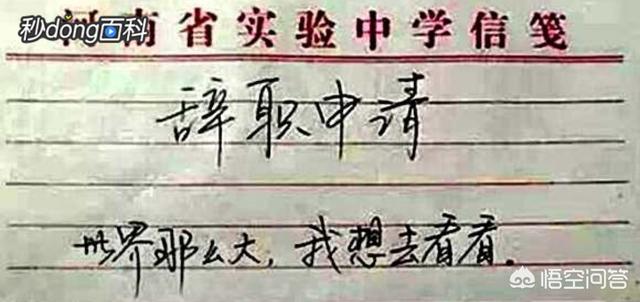 秒dong百科
河南省实验中学信笺
辞职申请
世界那么大，我想去看看。
悟空问答